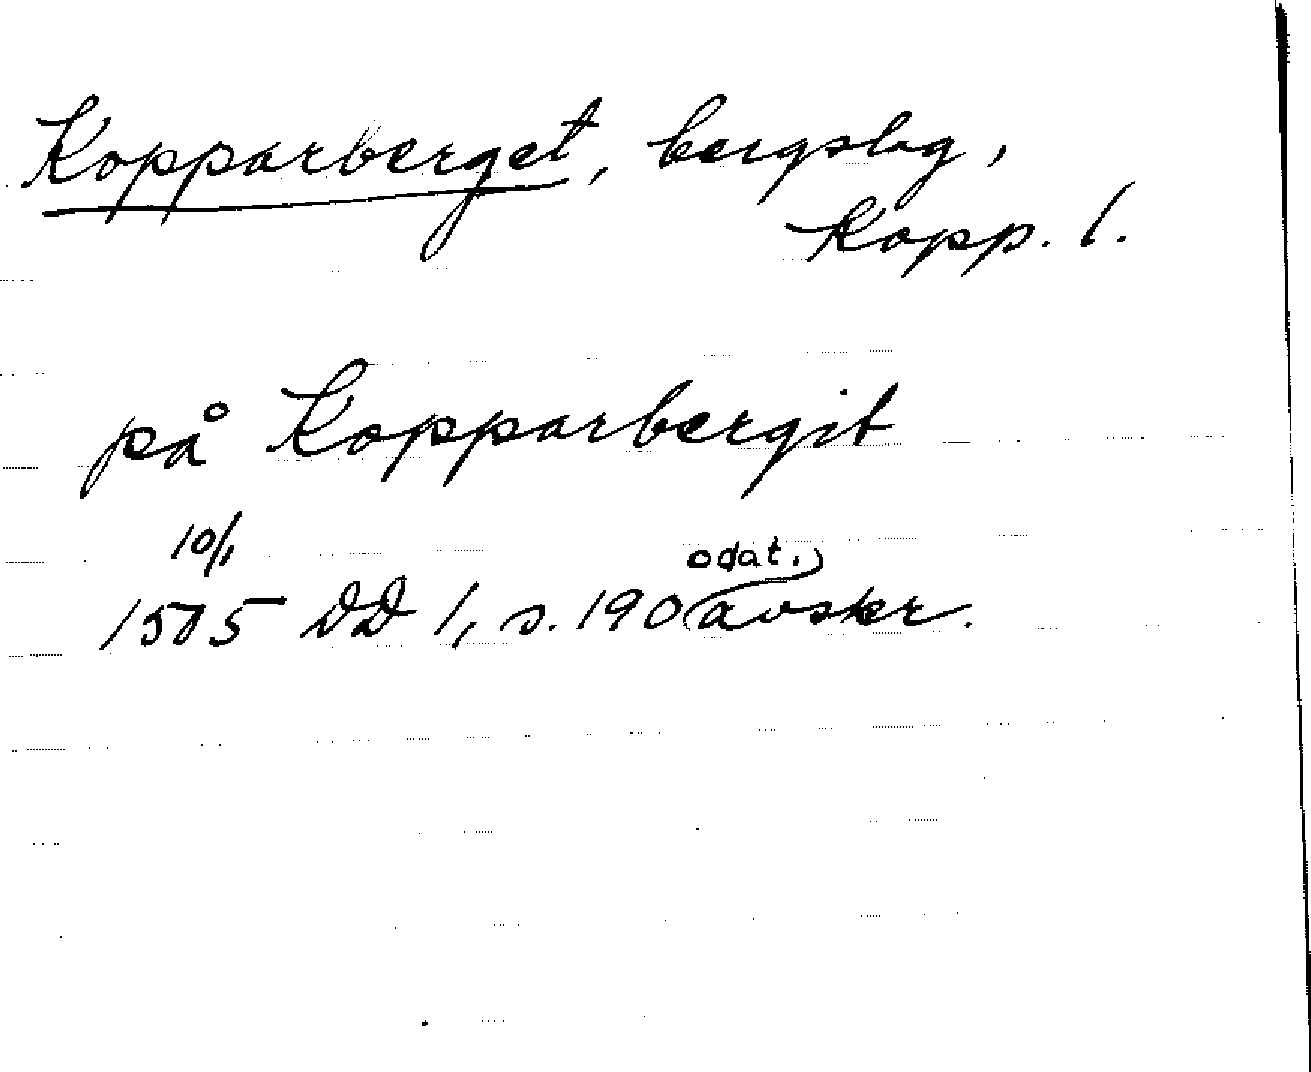 Kopparberget, bergslag,
Kopp. l.
på Kopparbergit
10/1
1505 DD 1, s. 190 odat. avskr.